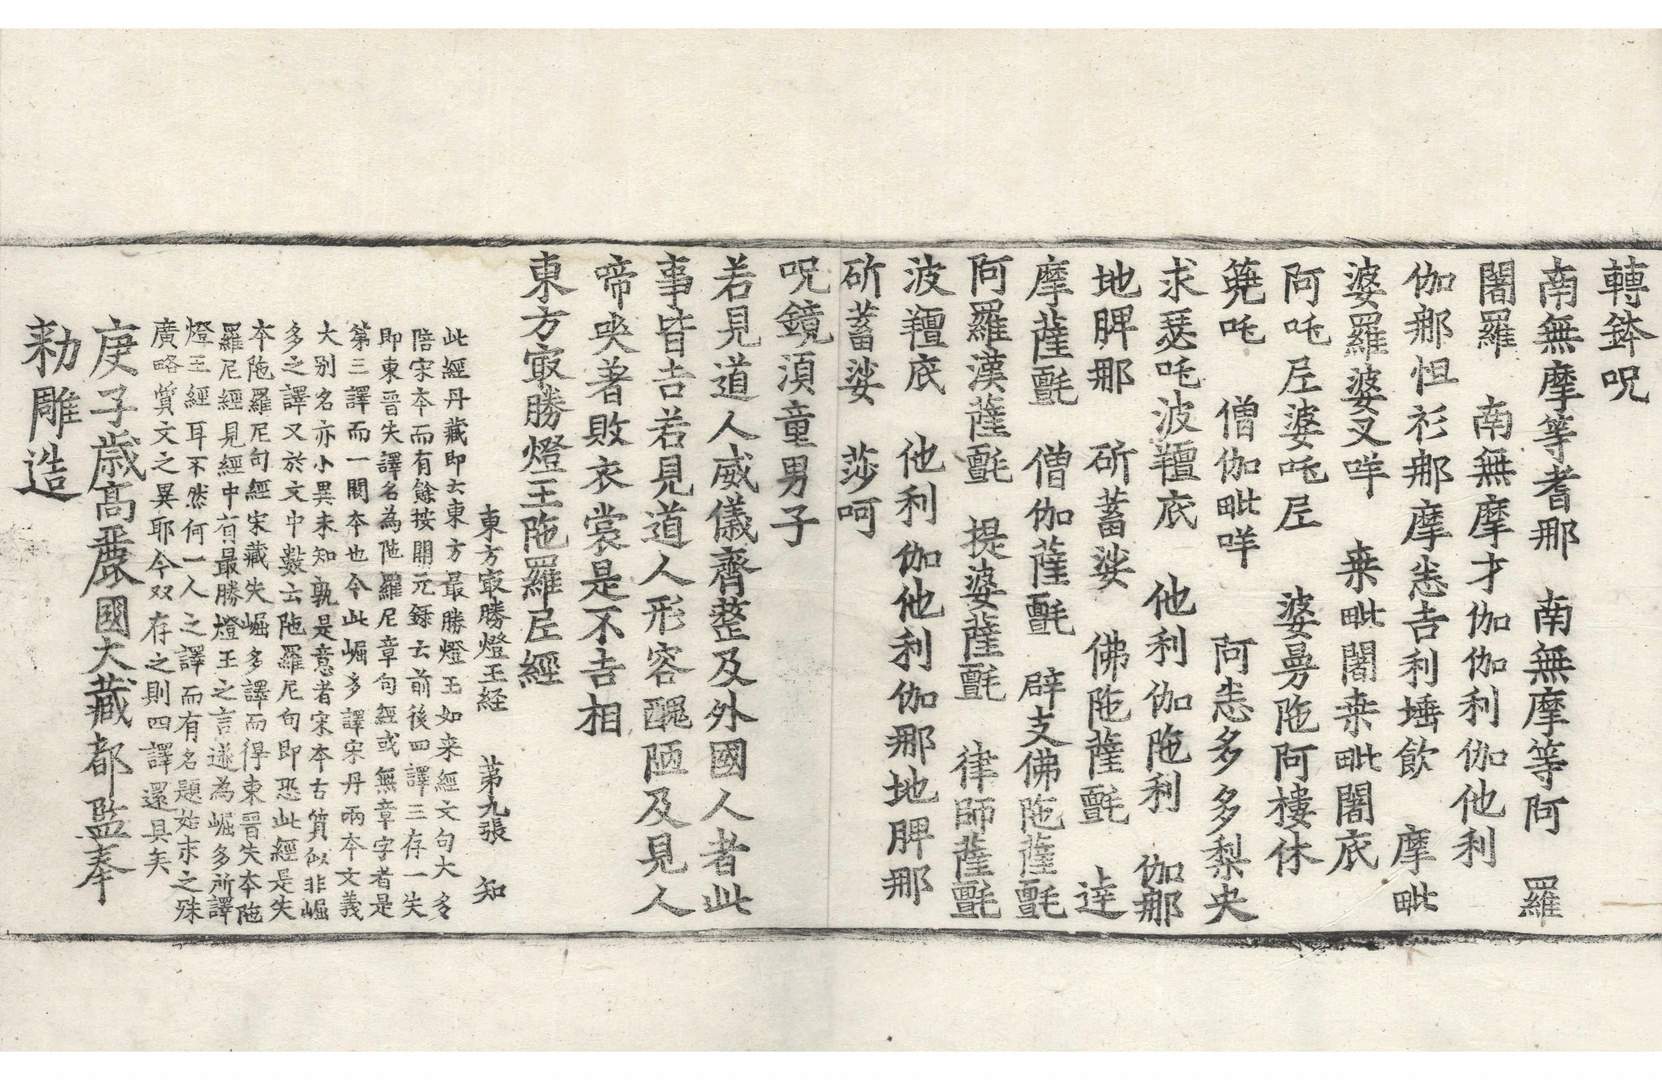 轉鉢呪
南無摩等耆那　南無摩等阿　羅
闍羅　南無摩才伽伽利伽他利
伽那怛衫那摩恙吉利埵飲　摩毗
婆羅婆叉咩　桒毗闍桒毗闍㡳
阿吒𡰱婆吒𡰱　婆曼陁阿樓休
䒳吒　僧伽毗咩　阿恙多多梨央
求瑟吒波羶㡳　他利伽陁利　伽那
地脾那　斫蓄娑　佛陁薩㲲　達
摩薩㲲　僧伽薩㲲　辟支佛陁薩㲲
阿羅漢薩㲲　提婆薩㲲　律師薩㲲
波羶㡳　他利伽他利伽那地脾那
斫蓄娑　莎呵
呪鏡湏童男子
若見道人威儀齊整及外國人者此
事皆吉若見道人形容醜陋及見人
啼哭著敗衣裳是不吉相
東方㝡勝燈王陁羅𡰱經
東方㝡勝燈王経　第九張　知
此經丹藏即云東方最勝燈王如來經文句大多
陪宋夲而有餘按開元録云前後四譯三存一失
即東晋失譯名為陁羅尼章句經或無章字者是
第三譯而一闕夲也今此崛多譯宋丹兩夲文義
大別名亦小異未知孰是意者宋夲古質似非崛
多之譯又於文中數云陁羅尼句即恐此經是失
夲陁羅尼句經宋藏失崛多譯而得東晋失夲陁
羅尼經見經中有最勝燈王之言遂為崛多所譯
燈王經耳不然何一人之譯而有名題始末之殊
廣略質文之異耶今双存之則四譯還具矣
庚子歳高麗國大藏都監奉
勑雕造